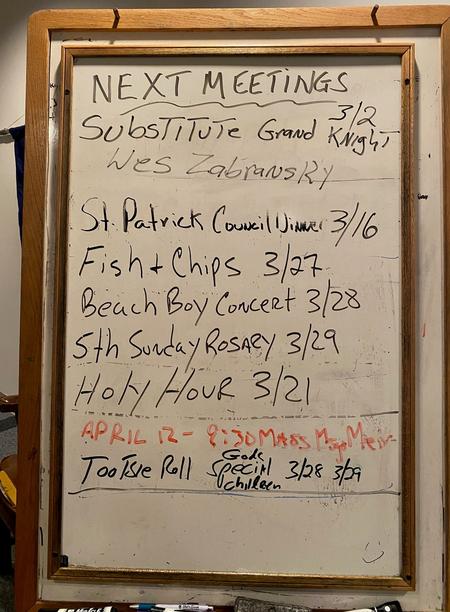 NEXT MEETINGS
3/2
SUBSTITUTE Grand KNIGHT
Wes Zabransky
St. Patrick Council Dinner 3/16
Fish + Chips 3/27
Beach Boy Concert 3/28
5th Sunday ROSARY 3/29
HOLY HOUR 3/21
APRIL 12 - 9:30 MASS
Tootsie Roll Gods Special children 3/28 3/29